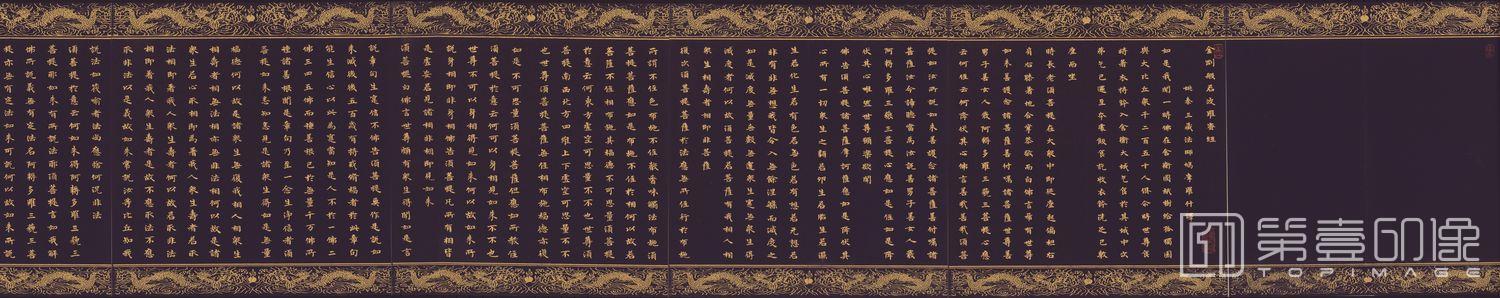 金剛般若波羅蜜經
姚秦三藏法師鳩摩羅什譯
如是我聞一時佛在舍衛國祇樹給孤獨園
與大比丘眾千二百五十人俱爾時世尊食
時著衣持鉢入舍衛大城乞食於其城中次
第乞已還至本處飯食訖收衣鉢洗足已敷
座而坐
時長老須菩提在大眾中即從座起偏袒右
肩右膝著地合掌恭敬而白佛言希有世尊
如來善護念諸菩薩善付囑諸菩薩世尊善
男子善女人發阿耨多羅三藐三菩提心應
云何住云何降伏其心佛言善哉善哉須菩
提如汝所說如來善護念諸菩薩善付囑諸
菩薩汝今諦聽當為汝說善男子善女人發
阿耨多羅三藐三菩提心應如是住如是降
伏其心唯然世尊願樂欲聞
佛告須菩提諸菩薩摩訶薩應如是降伏其
心所有一切眾生之類若卵生若胎生若濕
生若化生若有色若無色若有想若无想若
非有想非無想我皆令入無餘涅槃而滅度之
如是滅度無量無數無邊眾生實無眾生得
滅度者何以故須菩提若菩薩有我相人相
眾生相壽者相即非菩薩
復次須菩提菩薩於法應無所住行於布施
所謂不住色布施不住聲香味觸法布施須
菩提菩薩應如是布施不住於相何以故若
菩薩不住相布施其福德不可思量須菩提
於意云何東方虛空可思量不不也世尊須
菩提南西北方四維上下虛空可思量不不
也世尊須菩提菩薩無住相布施福德亦復
如是不可思量須菩提菩薩但應如所教住
須菩提於意云何可以身相見如來不不也
世尊不可以身相得見如來何以故如來所
說身相即非身相佛告須菩提凡所有相皆
是虛妄若見諸相非相即見如來
須菩提白佛言世尊頗有眾生得聞如是言
說章句生實信不佛告須菩提莫作是說如
來滅後後五百歲有持戒修福者於此章句
能生信心以此為實當知是人不於一佛二
佛三四五佛而種善根已於無量千萬佛所
種諸善根聞是章句乃至一念生淨信者須
菩提如來悉知悉見是諸眾生得如是無量
福德何以故是諸眾生無復我相人相眾生
相壽者相無法相亦無非法相何以故是諸
眾生若心取相即為著我人眾生壽者若取
法相即著我人眾生壽者何以故若取非法
相即著我人眾生壽者是故不應取法不應
取非法以是義故如來常說汝等比丘知我
說法如筏喻者法尚應捨何況非法
須菩提於意云何如來得阿耨多羅三藐三
菩提耶如來有所說法耶須菩提言如我解
佛所說義無有定法名阿耨多羅三藐三菩
提亦無有定法如來可說何以故如來所說
第壹印像
TOPIMAGE